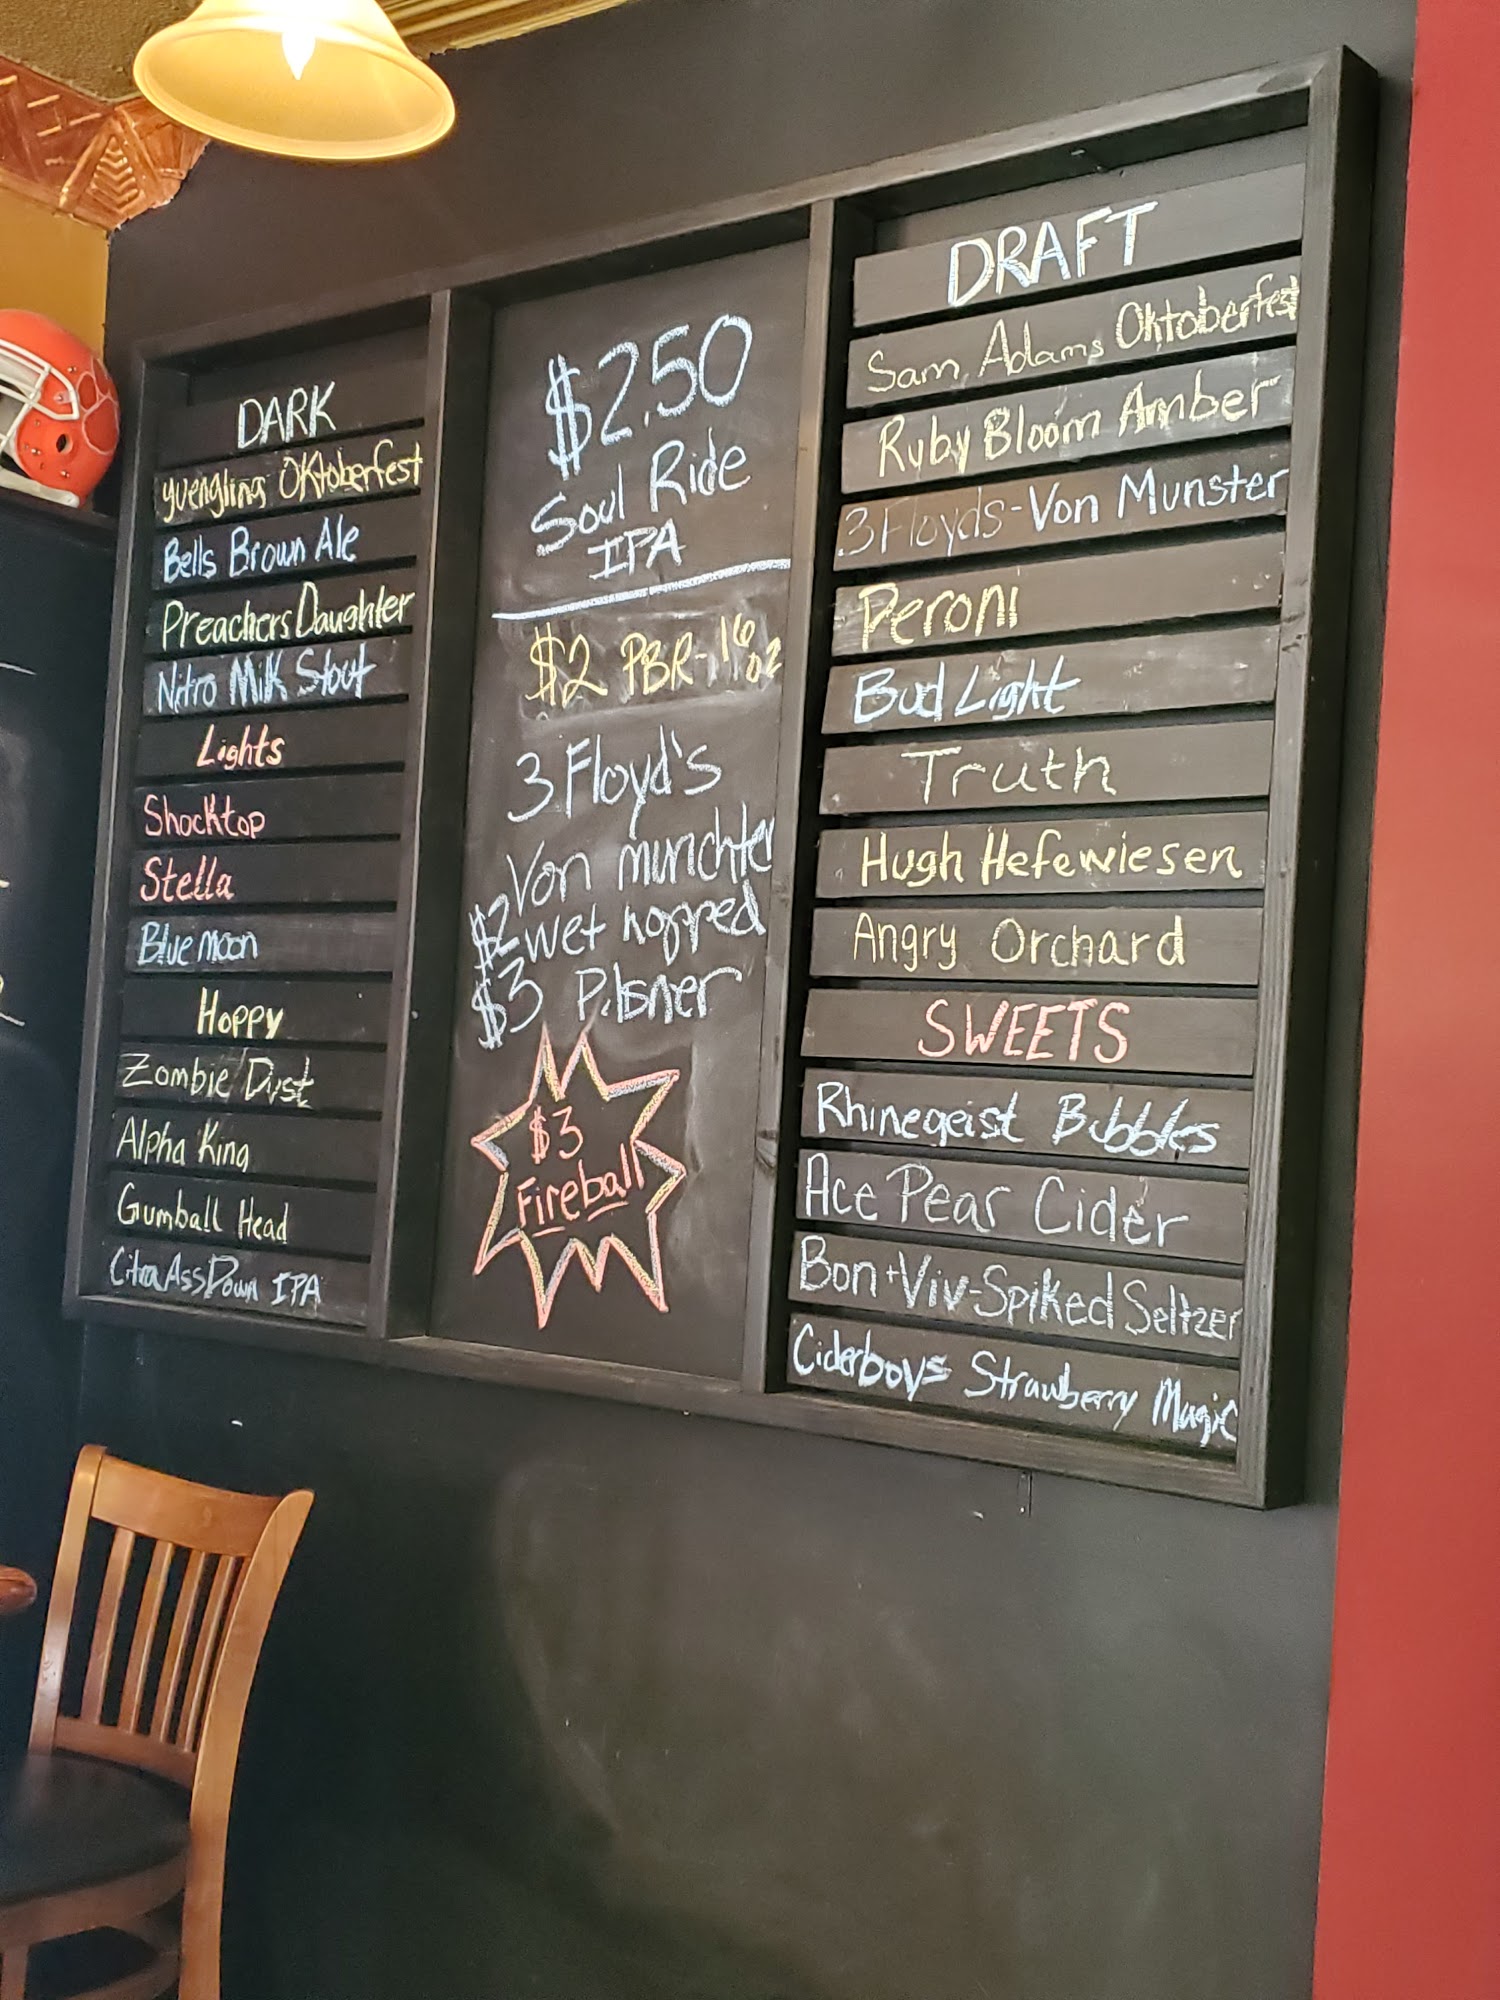 DARK
yuengling OKtoberfest
Bells Brown Ale
Preachers Daughter
Nitro Milk Stout
Lights
Shocktop
Stella
Blue moon
Hoppy
Zombie Dust
Alpha King
Gumball Head
Citra Ass Down IPA
$2.50
Soul Ride
IPA
$2 PBR-16oz
3 Floyd's
Von munchter
$2 wet hopped
$3 Pilsner
$3
Fireball
DRAFT
Sam Adams Oktoberfest
Ruby Bloom Amber
3 Floyds-Von Munster
Peroni
Bud Light
Truth
Hugh Hefewiesen
Angry Orchard
SWEETS
Rhinegeist Bubbles
Ace Pear Cider
Bon+Viv-Spiked Seltzer
Ciderboys Strawberry Magic